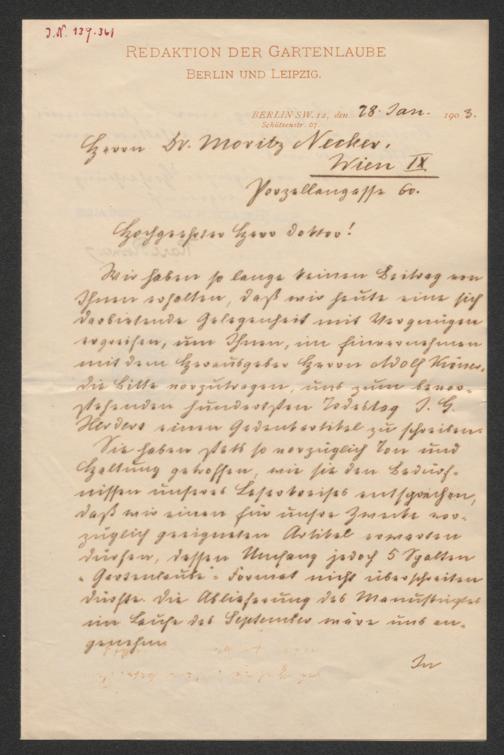 J.N. 139.361
REDAKTION DER GARTENLAUBE
BERLIN UND LEIPZIG.
BERLIN SW. 12, den 28. Jan. 1903.
Schützenstr.
Herrn Dr. Moritz Necker.
Wien IX
Porzellangasse 60.
Hochgeehrter Herr Doktor!
Wir haben so lange keinen Beitrag von
Ihnen erhalten, daß wir heute eine sich
darbietende Gelegenheit mit Vergnügen
ergreifen, um Ihnen, im Einvernehmen
mit dem Herausgeber Herrn Adolf Kröner,
die Bitte vorzutragen, uns zum bevor-
stehenden hundertsten Todestag J. G.
Herders einen Gedenkartikel zu schreiben.
Sie haben stets so vorzüglich Ton und
Haltung getroffen, wie sie den Bedürf-
nissen unseres Leserkreises entsprechen,
daß wir einen für unsre Zwecke vor-
züglich geeigneten Artikel erwarten
dürfen, dessen Umfang jedoch 5 Spalten
"Gartenlaube"-Format nicht überschreiten
dürfte. Die Ablieferung des Manuskriptes
im Laufe des September wäre uns an-
genehm.
In